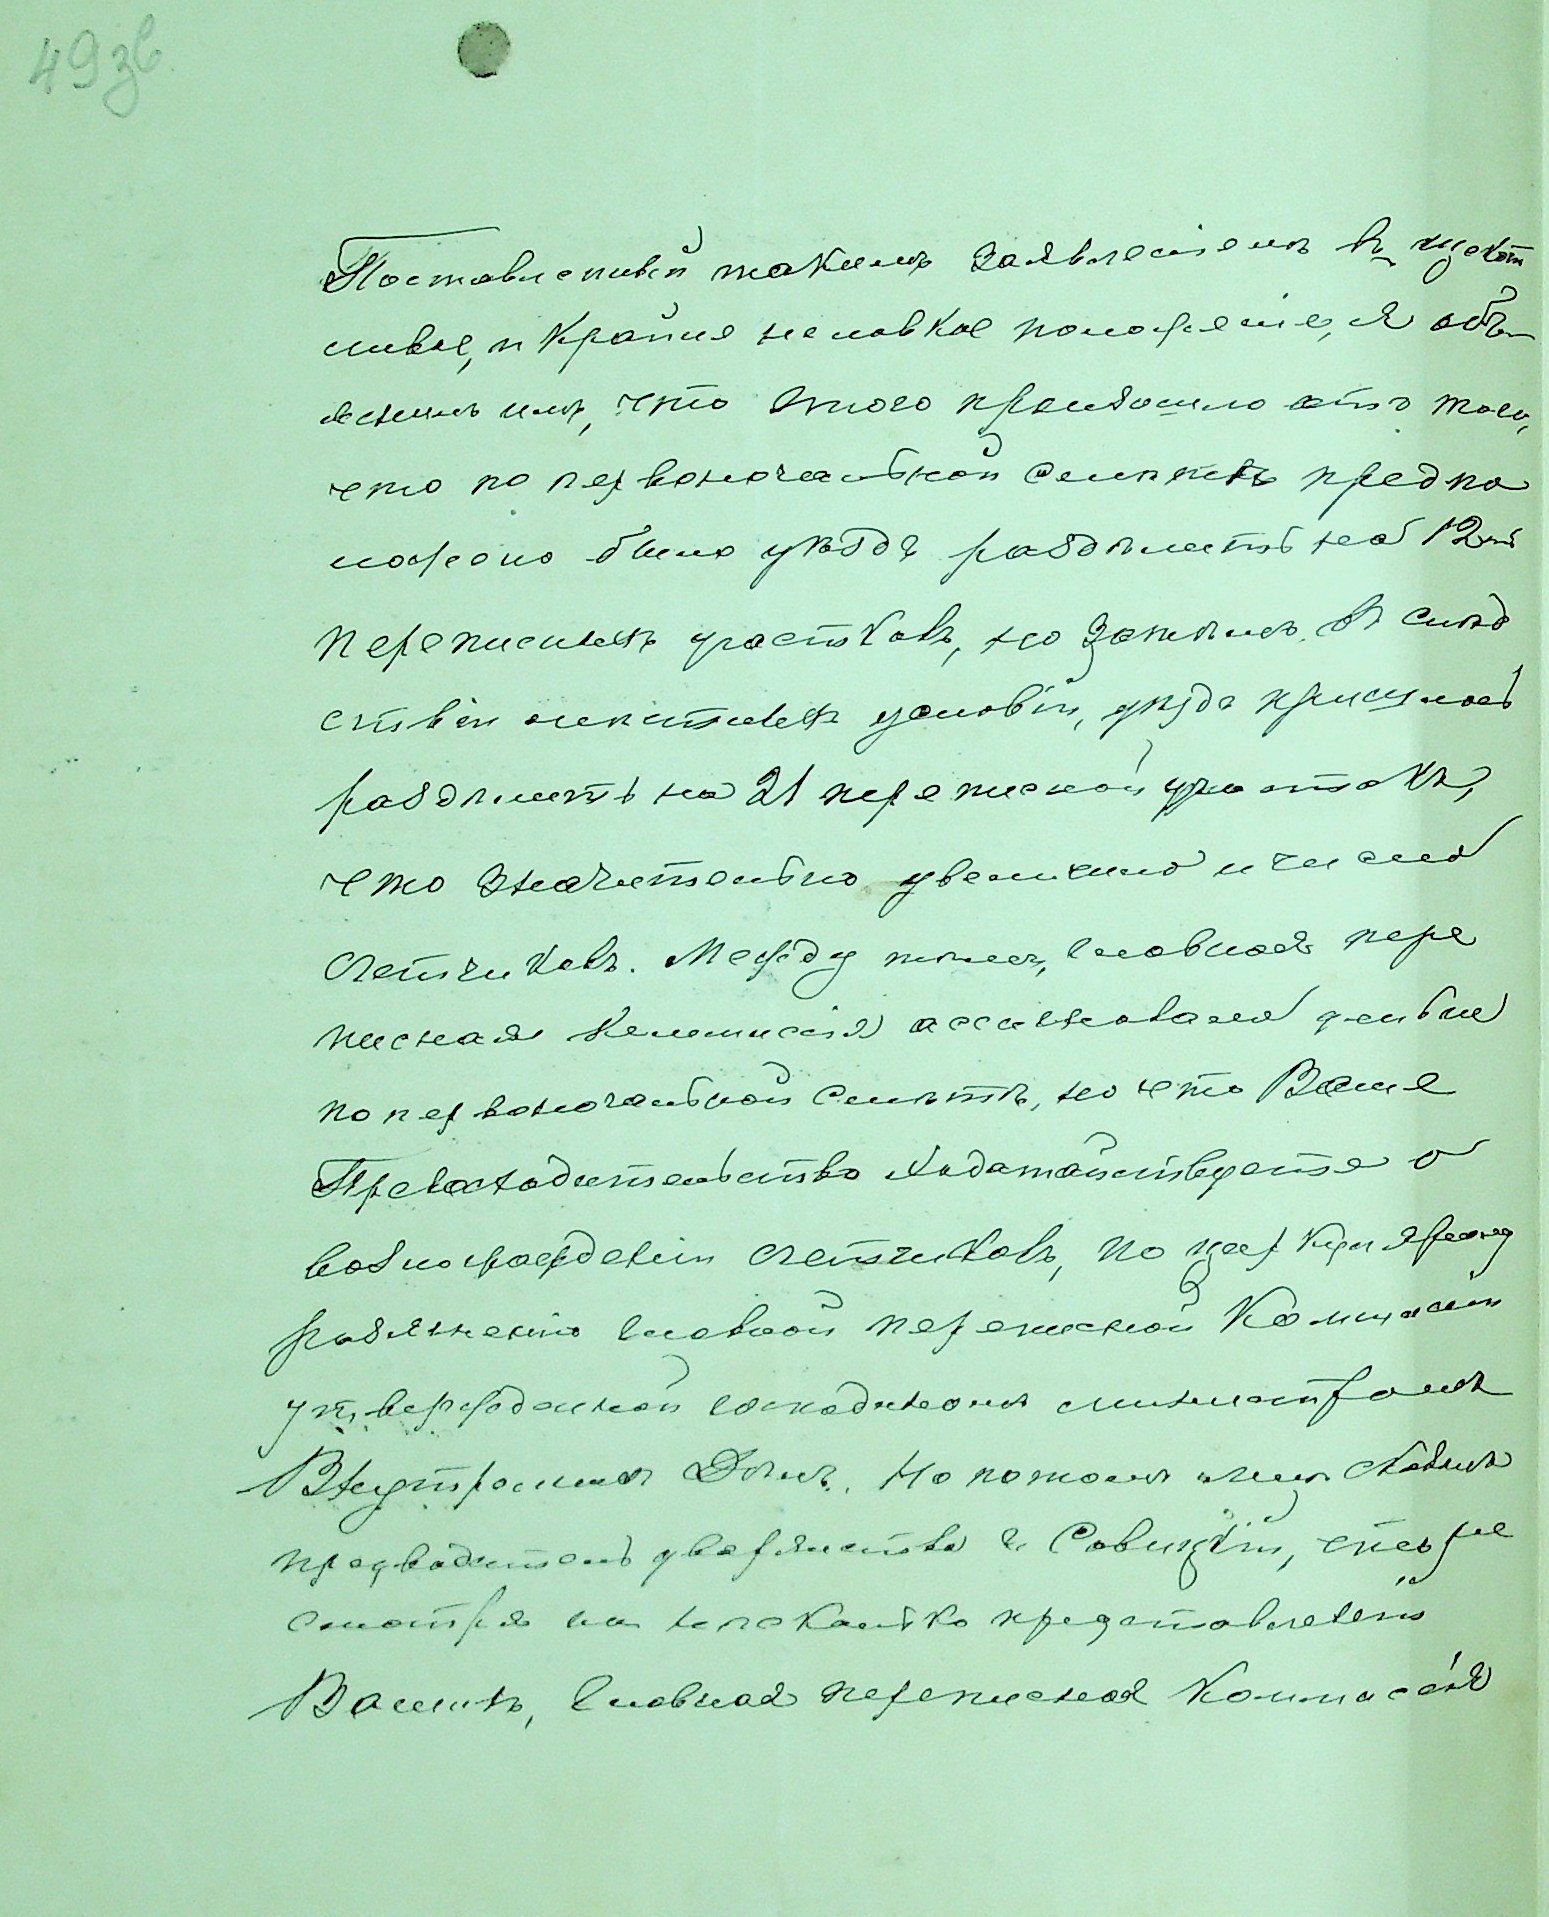 49 зв
Поставленный такимъ заявленіемъ въ щекот
ливое, и крайне неловкое положеніе, я объ-
яснилъ имъ, что этого произошло отъ того,
что по первоначальной смѣтѣ предпо
ложено было уѣздъ раздѣлить на 12ть
переписныхъ участковъ, но затѣмъ въ слѣд
ствіи мѣстныхъ условій, уѣздъ пришлось
раздѣлить на 21 переписной участокъ,
что значительно увеличило и число
счетчиковъ. Между тѣмъ, Главная пере
писная Коммисія ассигновала деньги
по первоначальной смѣтѣ, но что Ваше
Превосходительство ходатайствуете о
вознагражденіи счетчиковъ, по циркулярному
разъясненію Главной переписной Коммисіи
утвержденной Господиномъ Министромъ
Внутреннихъ Дѣлъ. Но потомъ мнѣ сказалъ
предводитель дворянства г. Савицкій, что не
смотря на нѣсколько представленій
Вашихъ, Главная переписная Коммисія